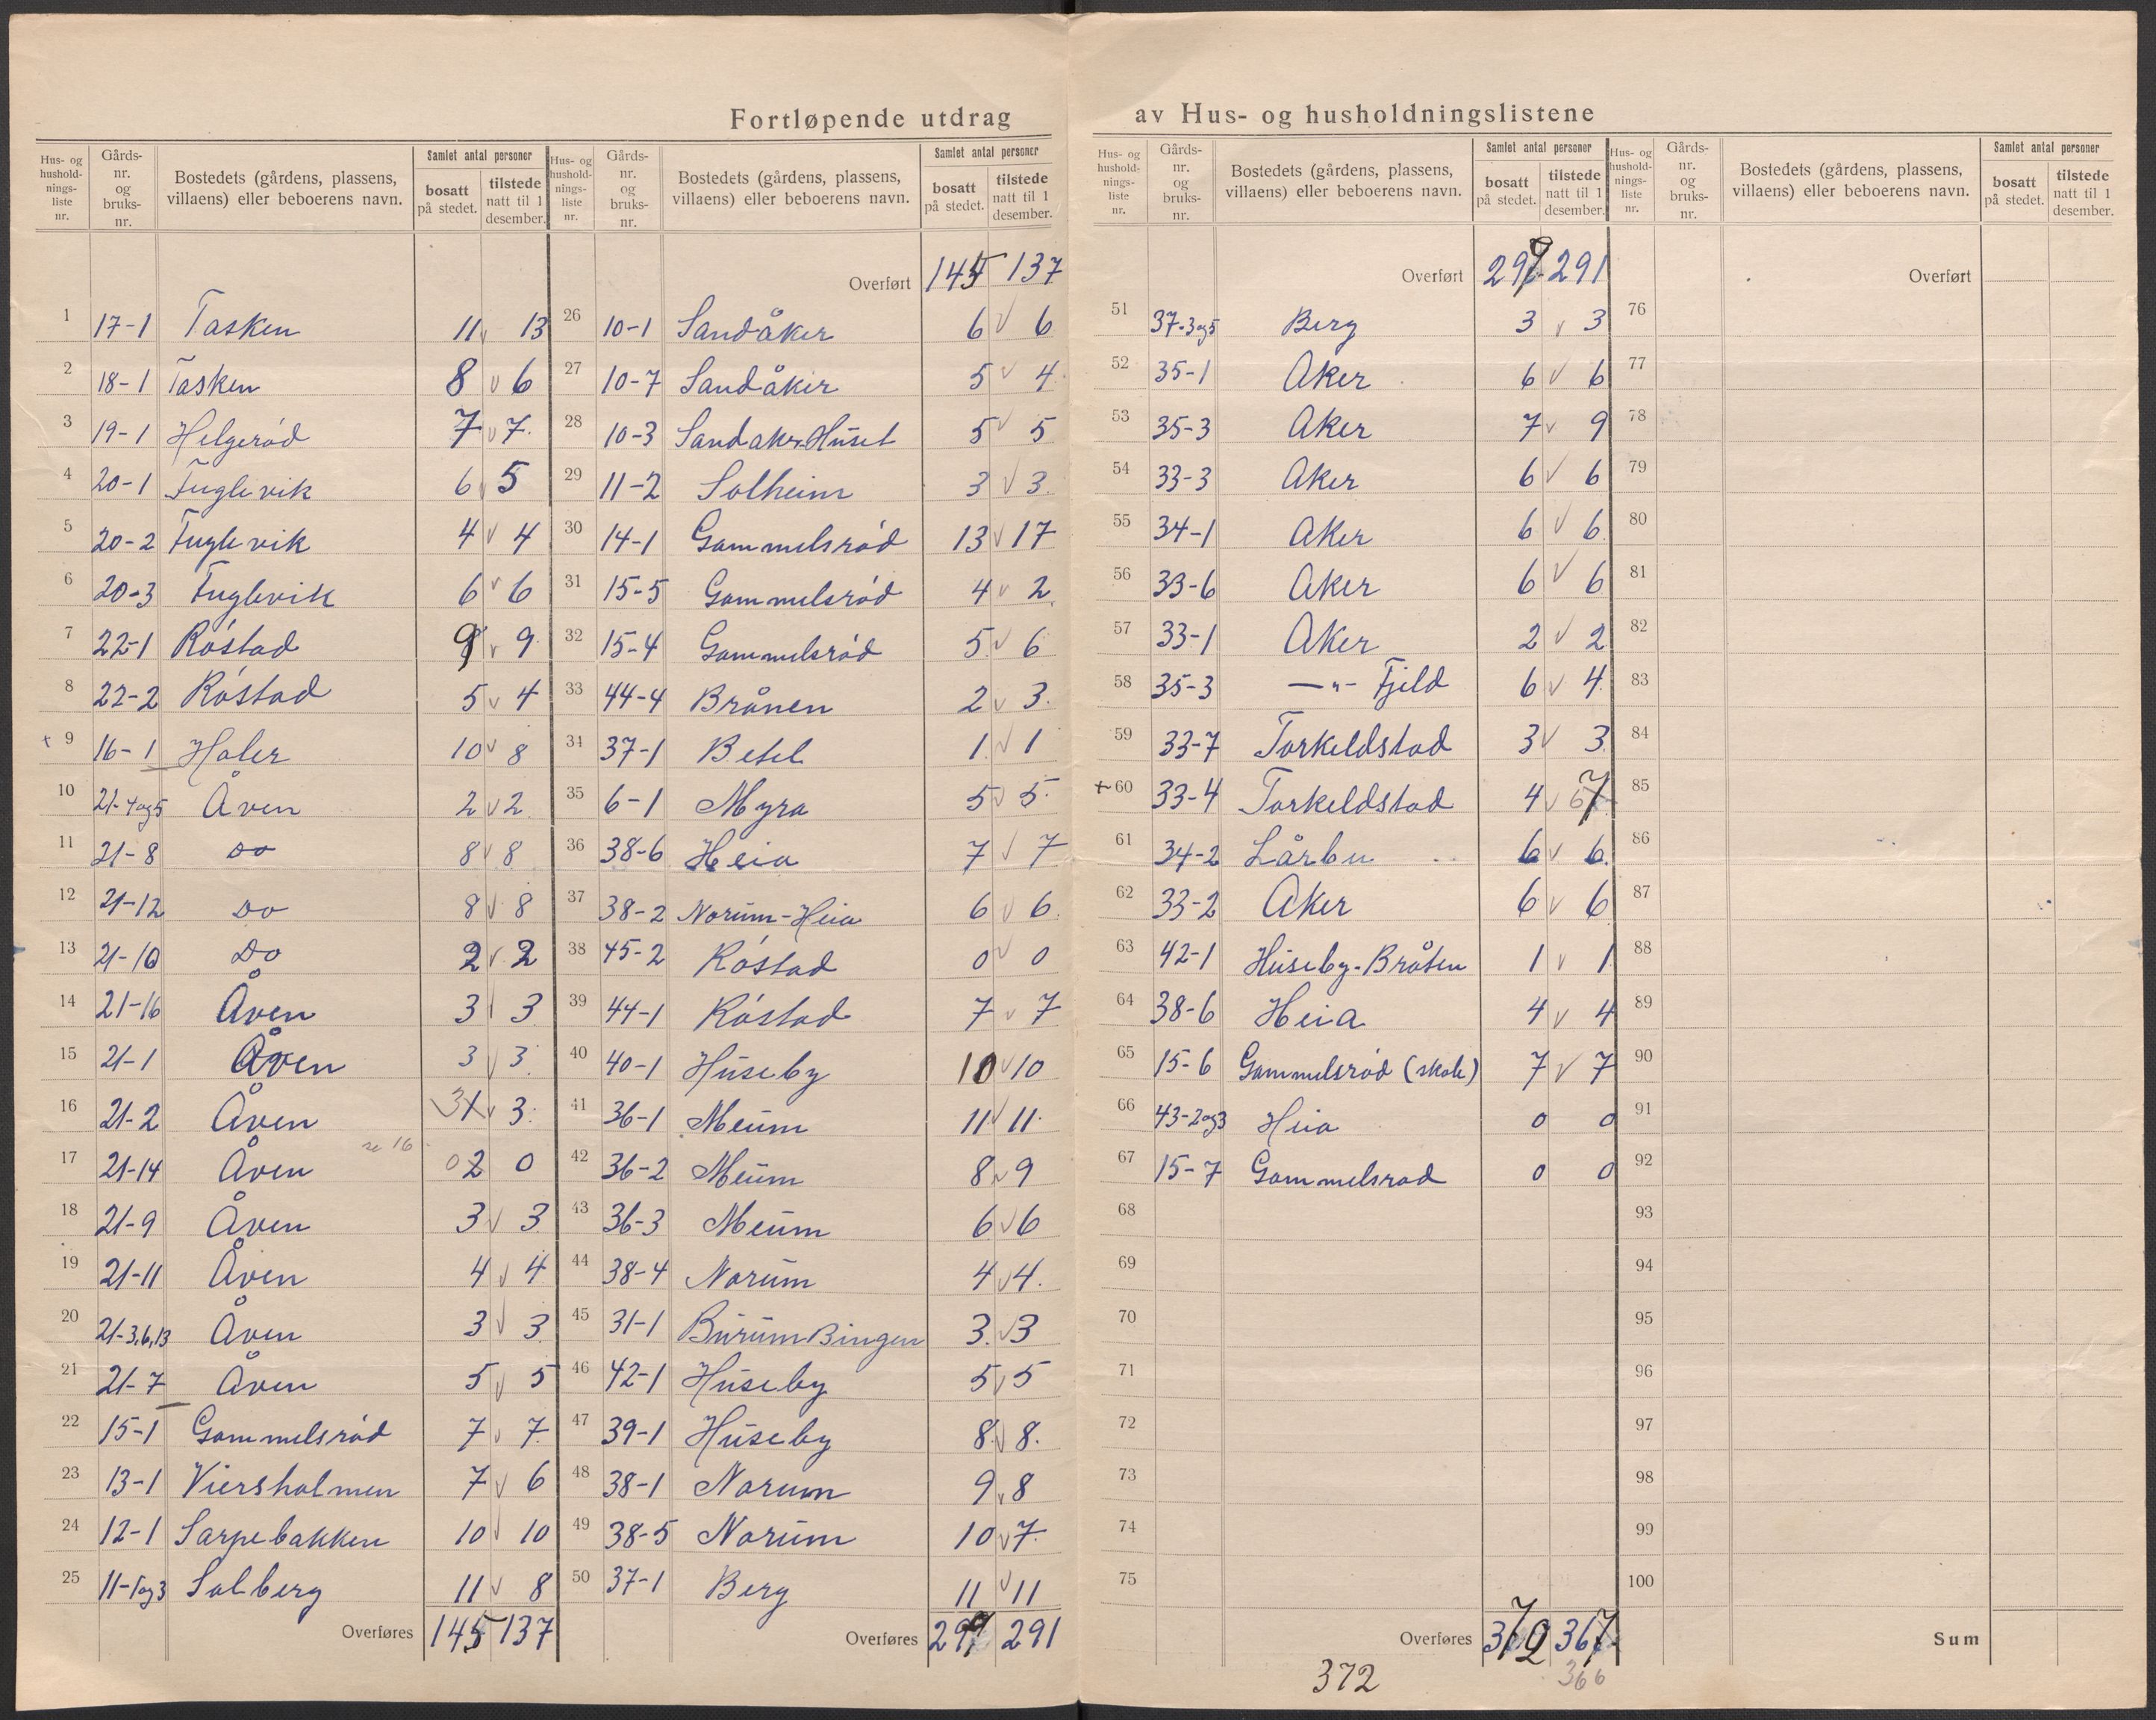 Fortløpende utdrag av Hus- og husholdningslistene
Hus- og hushold-nings-liste nr. | Gårds-nr. og bruks-nr. | Bostedets (gårdens, plassens, villaens) eller beboerens navn. | Samlet antal personer | bosatt på stedet. | tilstede natt til 1 desember.
1 17-1 Tasken 11 v 13
2 18-1 Tasken 8 v 6
3 19-1 Helgeród 7 v 7.
4 20-1 Fuglevik 6 v 5
5 20-2 Fuglevik 4 v 4
6 20-3 Fuglevik 6 v 6
7 22-1 Róstad 9 v 9
8 22-2 Róstad 5 v 4
+ 9 16-1 Haler 10 v 8
10 21-4og5 Åven 2 v 2.
11 21-8 Do 8 v 8
12 21-12 Do 8 v 8
13 21-10 Do 2 v 2
14 21-16 Åven 3 v 3
15 21-1 Åven 3 v 3
16 21-2 Åven 3 v 3.
17 21-14 Åven se 16 0 2 0
18 21-9 Åven 3 v 3
19 21-11 Åven 4 v 4
20 21-3,6,13 Åven 3 v 3
21 21-7 Åven 5 v 5
22 15-1 Gammelsród 7 v 7.
23 13-1 Viersholmen 7 v 6
24 12-1 Sarpebakken 10 v 10
25 11-1og3 Solberg 11 v 8
Overføres 145 137
Hus- og hushold-nings-liste nr. | Gårds-nr. og bruks-nr. | Bostedets (gårdens, plassens, villaens) eller beboerens navn. | Samlet antal personer | bosatt på stedet. | tilstede natt til 1 desember.
Overført 145 137
26 10-1 Sandåker 6 v 6
27 10-7 Sandåker 5 v 4
28 10-3 Sandaker-Huset 5 v 5
29 11-2 Solheim 3 v 3.
30 14-1 Gammelsród 13 v 17
31 15-5 Gammelsród 4 v 2
32 15-4 Gammelsród 5 v 6
33 44-4 Brånen 2 v 3.
34 37-1 Betel 1 v 1
35 6-1 Myra 5 v 5.
36 38-6 Heia 7 v 7
37 38-2 Norum-Heia 6 v 6.
38 45-2 Róstad 0 v 0
39 44-1 Róstad 7 v 7
40 40-1 Huseby 10 v 10
41 36-1 Meum 11 v 11.
42 36-2 Meum 8 v 9
43 36-3 Meum 6 v 6
44 38-4 Norum 4 v 4.
45 31-1 Burum Bingen 3. v 3
46 42-1 Huseby 5 v 5
47 39-1 Huseby 8. v 8.
48 38-1 Norum 9 v 8
49 38-5 Norum 10 v 7.
50 37-1 Berg 11 v 11
Overføres 299 291
Hus- og hushold-nings-liste nr. | Gårds-nr. og bruks-nr. | Bostedets (gårdens, plassens, villaens) eller beboerens navn. | Samlet antal personer | bosatt på stedet. | tilstede natt til 1 desember.
Overført 299 291
51 37-3og5 Berg 3 v 3
52 35-1 Aker 6 v 6
53 35-3 Aker 7 v 9
54 33-3 Aker 6 v 6
55 34-1 Aker 6 v 6.
56 33-6 Aker 6 v 6
57 33-1 Aker 2 v 2
58 35-3 —"— Fjeld 6 v 4.
59 33-7 Torkeldstad 3 v 3.
+ 60 33-4 Torkeldstad 4 v 7
61 34-2 Lårbu 6 v 6.
62 33-2 Aker 6 v 6
63 42-1 Huseby-Bråten 1 v 1
64 38-6 Heia 4 v 4
65 15-6 Gammelsród (skole) 7 v 7
66 43-2og3 Heia 0 0
67 15-7 Gammelsrod 0 0
68
69
70
71
72
73
74
75
Overføres 372 367
372 366
Hus- og hushold-nings-liste nr. | Gårds-nr. og bruks-nr. | Bostedets (gårdens, plassens, villaens) eller beboerens navn. | Samlet antal personer | bosatt på stedet. | tilstede natt til 1 desember.
Overført
76
77
78
79
80
81
82
83
84
85
86
87
88
89
90
91
92
93
94
95
96
97
98
99
100
Sum